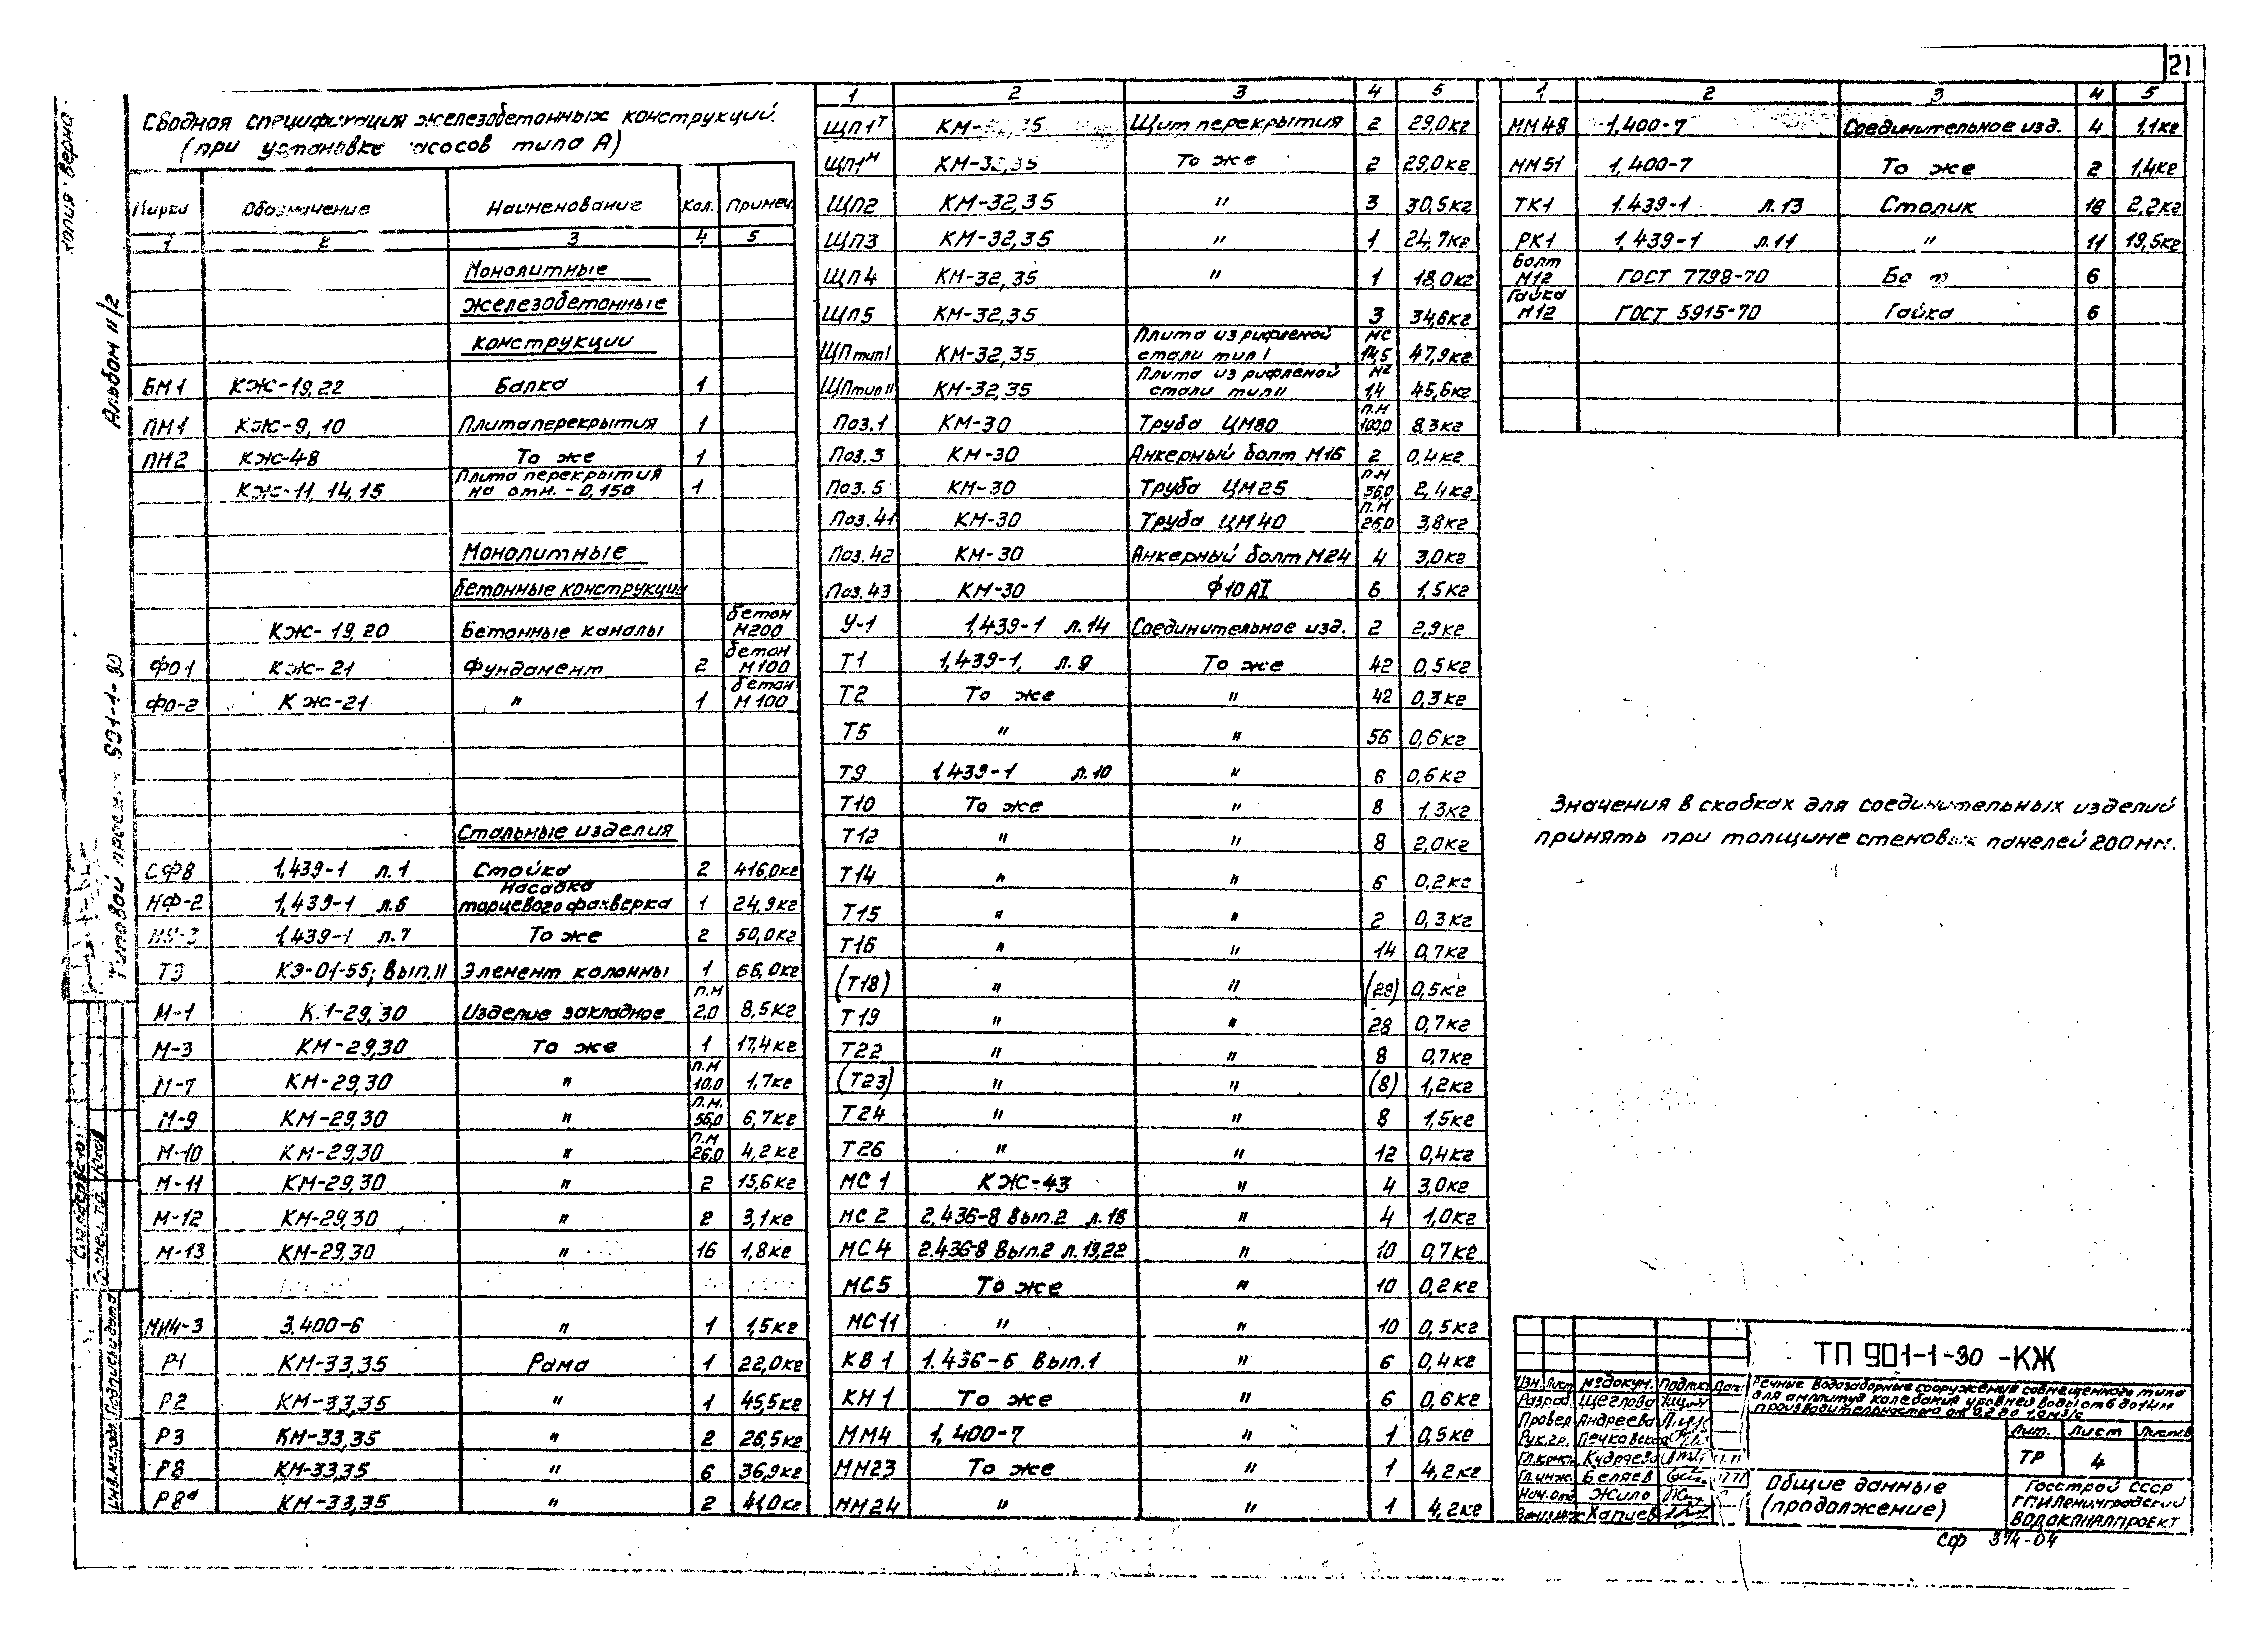 21
Сводная спецификация железобетонных конструкций
(при установке насосов типа А)
Марка Обозначение Наименование Кол. Примеч.
1 2 3 4 5
Монолитные
железобетонные
конструкции
БМ1 КЖ-19,22 Балка 1
ПМ1 КЖ-9, 10 Плита перекрытия 1
ПМ2 КЖ-48 То же 1
КЖ-11, 14,15 Плита перекрытия на отм. -0,150 1
Монолитные
бетонные конструкции
КЖ-19,20 Бетонные каналы бетон М200
ФО1 КЖ-21 Фундамент 2 бетон М100
ФО-2 КЖ-21 " 1 бетон М100
Стальные изделия
СФ8 1,439-1 л.1 Стойка 2 416,0кг
НФ-2 1,439-1 л.6 Насадка торцевого фахверка 1 24,9кг
1,439-1 л.7 То же 2 50,0кг
Т3 КЭ-01-55; вып.II Элемент колонны 1 66,0кг
М-1 -29,30 Изделие закладное п.м 2,0 8,5кг
М-3 КМ-29,30 То же 1 17,4кг
М-7 КМ-29,30 " п.м 10,0 1,7кг
М-9 КМ-29,30 " п.м. 56,0 6,7кг
М-10 КМ-29,30 " п.м 26,0 4,2кг
М-11 КМ-29,30 " 2 15,6кг
М-12 КМ-29,30 " 2 3,1кг
М-13 КМ-29,30 " 16 1,8кг
МН4-3 3.400-6 " 1 1,5кг
Р1 КМ-33,35 Рама 1 22,0кг
Р2 КМ-33,35 " 1 45,5кг
Р3 КМ-33,35 " 2 26,5кг
Р8 КМ-33,35 " 6 36,9кг
Р8а КМ-33,35 " 2 41,0кг
1 2 3 4 5
ЩП1Т КМ-32,35 Щит перекрытия 2 29,0кг
ЩП1М КМ-32,35 То же 2 29,0кг
ЩП2 КМ-32,35 " 3 30,5кг
ЩП3 КМ-32,35 " 1 24,7кг
ЩП4 КМ-32,35 " 1 18,0кг
ЩП5 КМ-32,35 3 34,6кг
ЩПтип I КМ-32,35 Плита из рифленой стали тип I 14,5 47,9кг
ЩПтип II КМ-32,35 Плита из рифленой стали тип II м2 1,4 45,6кг
Поз.1 КМ-30 Труба ЦМ80 п.м 100,0 8,3кг
Поз.3 КМ-30 Анкерный болт М16 2 0,4кг
Поз.5 КМ-30 Труба ЦМ25 п.м 36,0 2,4кг
Поз.41 КМ-30 Труба ЦМ40 п.м 26,0 3,8кг
Поз.42 КМ-30 Анкерный болт М24 4 3,0кг
Поз.43 КМ-30 Ф10АI 6 1,5кг
У-1 1,439-1 л.14 Соединительное изд. 2 2,9кг
Т1 1,439-1, л.9 То же 42 0,5кг
Т2 То же " 42 0,3кг
Т5 " " 56 0,6кг
Т9 1,439-1 л.10 " 6 0,6кг
Т10 То же " 8 1,3кг
Т12 " " 8 2,0кг
Т14 " " 6 0,2кг
Т15 " " 2 0,3кг
Т16 " " 14 0,7кг
(Т18) " " (28) 0,5кг
Т19 " " 28 0,7кг
Т22 " " 8 0,7кг
(Т23) " " (8) 1,2кг
Т24 " " 8 1,5кг
Т26 " " 12 0,4кг
МС1 КЖ-43 " 4 3,0кг
МС2 2.436-8 вып.2 л.18 " 4 1,0кг
МС4 2.436-8 вып.2 л.19,22 " 10 0,7кг
МС5 То же " 10 0,2кг
МС11 " " 10 0,5кг
КВ1 1.436-6 вып.1 " 6 0,4кг
КН1 То же " 6 0,6кг
ММ4 1,400-7 " 1 0,5кг
ММ23 То же " 1 4,2кг
ММ24 " " 1 4,2кг
1 2 3 4 5
ММ48 1,400-7 Соединительное изд. 4 1,1кг
ММ51 1,400-7 То же 2 1,4кг
ТК1 1.439-1 л.13 Столик 18 2,2кг
РК1 1,439-1 л.11 " 11 19,5кг
Болт М12 ГОСТ 7798-70 6
Гайка М12 ГОСТ 5915-70 Гайка 6
Значения в скобках для соединительных изделий
принять при толщине стеновых панелей 200мм.
ТП 901-1-30 -КЖ
Изм. Лист №докум. Подпись Дата
Разраб. Щеглова
Провер. Андреева
Рук.гр. Печковская
Гл.констр. Кудряева
Гл.инж. Беляев
Нач.отд. Жило
Хапиев
Речные водозаборные сооружения совмещенного типа
для амплитуд колебания уровней воды от 6 до 14м
производительностью от 0,2 до 1,0м3/с
Лит. Лист Листов
ТР 4
Общие данные
(продолжение)
Госстрой СССР
ГПИ Ленинградский
ВОДОКАНАЛПРОЕКТ
Сф 374-04
Копия верна
Альбом II/2
Типовой проект 901-1-30
Согласовано:
Инв.№подл. Подпись и дата